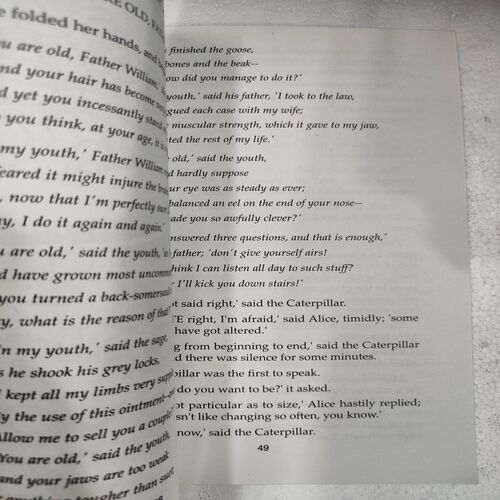 RE OLD, FA
e folded her hands, and
are old, Father William,'
nd your hair has become very
nd yet you incessantly stand
you think, at your age, it is
my youth,' Father William
eared it might injure the brain
now that I'm perfectly sure
y, I do it again and again.'
are old,' said the youth, 'as
d have grown most uncommo
you turned a back-somersault
y, what is the reason of that
n my youth,' said the sage,
s he shook his grey locks,
kept all my limbs very supp
y the use of this ointment-
Allow me to sell you a couple
You are old,' said the youth,
and your jaws are too weak
anything tougher than suet
u finished the goose,
bones and the beak--
ow did you manage to do it?'
youth,' said his father, 'I took to the law,
gued each case with my wife;
e muscular strength, which it gave to my jaw,
ted the rest of my life.'
e old,' said the youth,
d hardly suppose
ur eye was as steady as ever;
balanced an eel on the end of your nose--
ade you so awfully clever?'
nswered three questions, and that is enough,'
s father; 'don't give yourself airs!
think I can listen all day to such stuff?
r I'll kick you down stairs!'
ot said right,' said the Caterpillar.
TE right, I'm afraid,' said Alice, timidly; 'some
have got altered.'
g from beginning to end,' said the Caterpillar
nd there was silence for some minutes.
pillar was the first to speak.
do you want to be?' it asked.
ot particular as to size,' Alice hastily replied;
sn't like changing so often, you know.'
now,' said the Caterpillar.
49